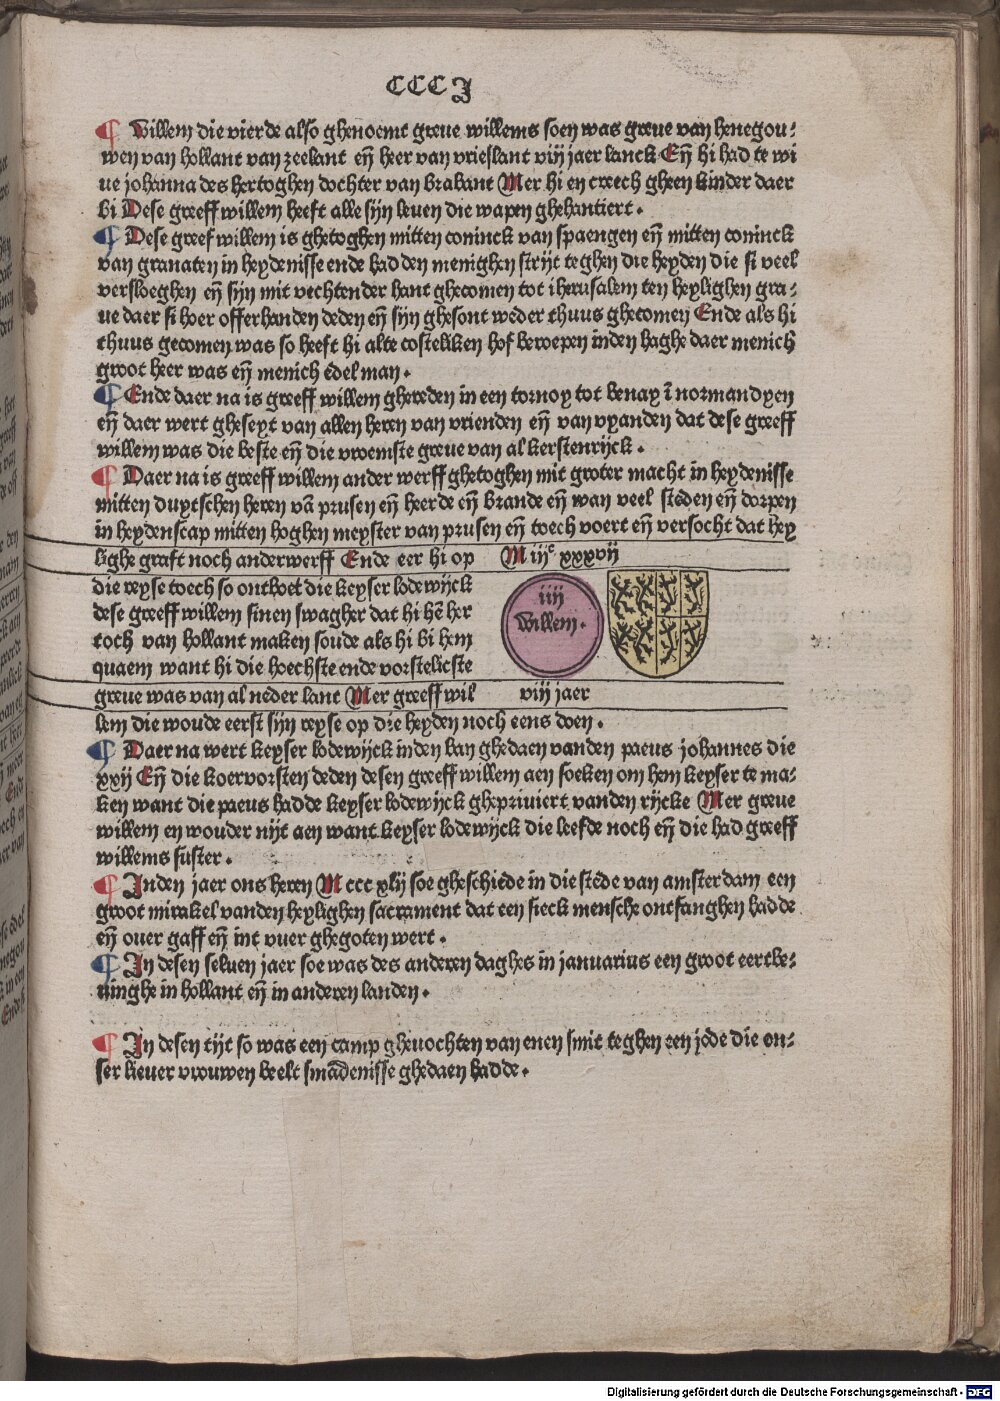 CCCI
¶ Willem die vierde also ghenoemt greue willems soen was greue van henegou⸗
wen van hollant van zeelant eñ heer van vrieslant viij jaer lanck Eñ hi had te wi
ue johanna des hertoghen dochter van brabant Mer hi en creech gheen kinder daer
bi Dese greeff willem heeft alle sijn leuen die wapen ghehantiert.
¶ Dese greef willem is ghetoghen mitten coninck van spaengen eñ mitten coninck
van granaten in heydenisse ende had den menighen strijt teghen die heyden die si veel
versloeghen eñ sijn mit vechtender hant ghecomen tot iherusalem ten heylighen gra⸗
ue daer si hoer offerhanden deden eñ sijn ghesont weder thuus ghecomen Ende als hi
thuus gecomen was so heeft hi alte costeliken hof beroepen inden haghe daer menich
groot heer was eñ menich edel man.
¶ Ende daer na is greeff willem ghereden in een tornoy tot benay ī normandyen
eñ daer wert gheseyt van allen heren van vrienden eñ van vyanden dat dese greeff
willem was die beste eñ die vroemste greue van al kerstenrijck.
¶ Daer na is greeff willem ander werff ghetoghen mit groter macht in heydenisse
mitten duytschen heren vā prusen eñ heerde eñ brande eñ wan veel steden eñ dorpen
in heydenscap mitten hoghen meyster van prusen eñ toech voert eñ versocht dat hey
lighe graft noch anderwerff Ende eer hi op
die reyse toech so ontboet die keyser lodewijck
dese greeff willem sinen swagher dat hi hē her
toch van hollant maken soude als hi bi hem
quaem want hi die hoechste ende vorstelicste
greue was van al neder lant Mer greeff wil
lem die woude eerst sijn reyse op die heyden noch eens doen.
M iijᶜ xxxvij
iiij
Willem.
viij jaer
¶ Daer na wert keyser lodewijck inden ban ghedaen vanden paeus johannes die
xxij Eñ die koervorsten deden desen greeff willem aen soeken om hem keyser te ma⸗
ken want die paeus hadde keyser lodewijck ghepriuiert vanden rijcke Mer greue
willem en wouder nijt aen want keyser lodewijck die leefde noch eñ die had greeff
willems suster.
¶ Inden jaer ons heren M ccc xlij soe gheschiede in die stede van amsterdam een
groot mirakel vanden heylighen sacrament dat een sieck mensche ontfanghen hadde
eñ ouer gaff eñ int vuer ghegoten wert.
¶ In desen seluen jaer soe was des anderen daghes in januarius een groot eertbe⸗
uinghe in hollant eñ in anderen landen.
¶ In desen tijt so was een camp gheuochten van enen smit teghen een jode die on⸗
ser lieuer vrouwen beelt smādenisse ghedaen hadde.
Digitalisierung gefördert durch die Deutsche Forschungsgemeinschaft - DFG